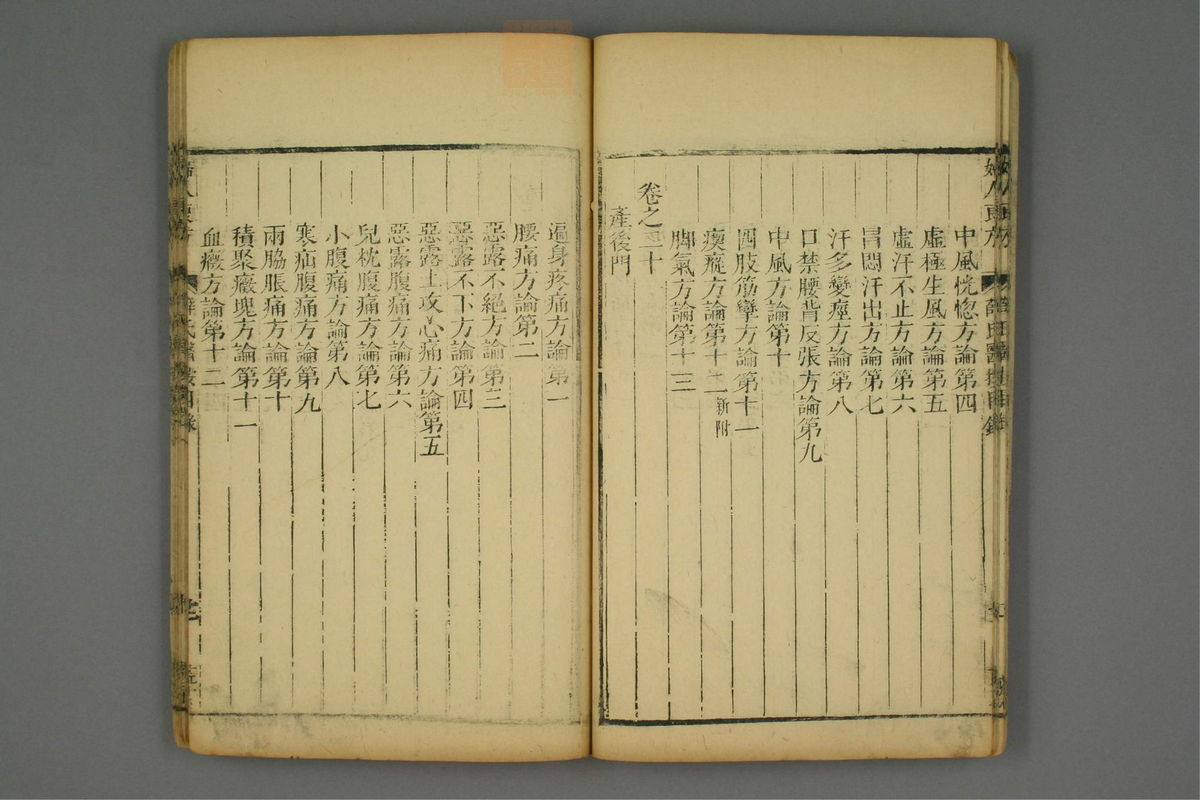 中風恍惚方論第四
虛極生風方論第五
虛汗不止方論第六
冒悶汗出方論第七
汗多變痙方論第八
口禁腰背反張方論第九
中風方論第十
四肢筋攣方論第十一
瘈瘲方論第十二新附
脚氣方論第十三
卷之二十
產後門
遍身疼痛方論第一
腰痛方論第二
惡露不絕方論第三
惡露不下方論第四
惡露上攻心痛方論第五
惡露腹痛方論第六
兒枕腹痛方論第七
小腹痛方論第八
寒疝腹痛方論第九
兩脇脹痛方論第十
積聚癥塊方論第十一
血癥方論第十二